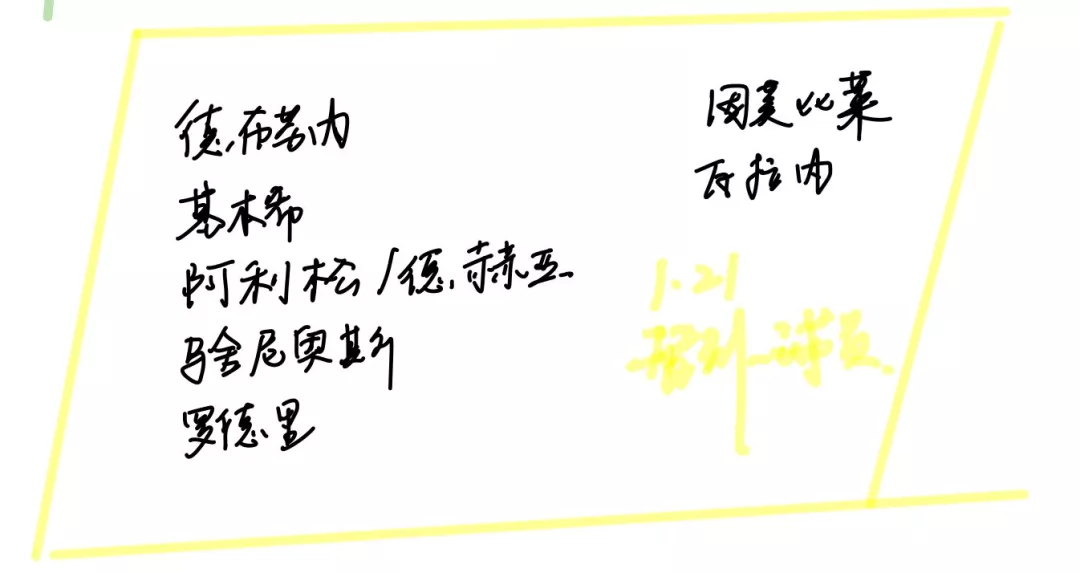 德布劳内
基本希
阿利松/德赫亚
马舍尼奥斯
罗德里
因芙比莱
瓦拉内
1.21
球员